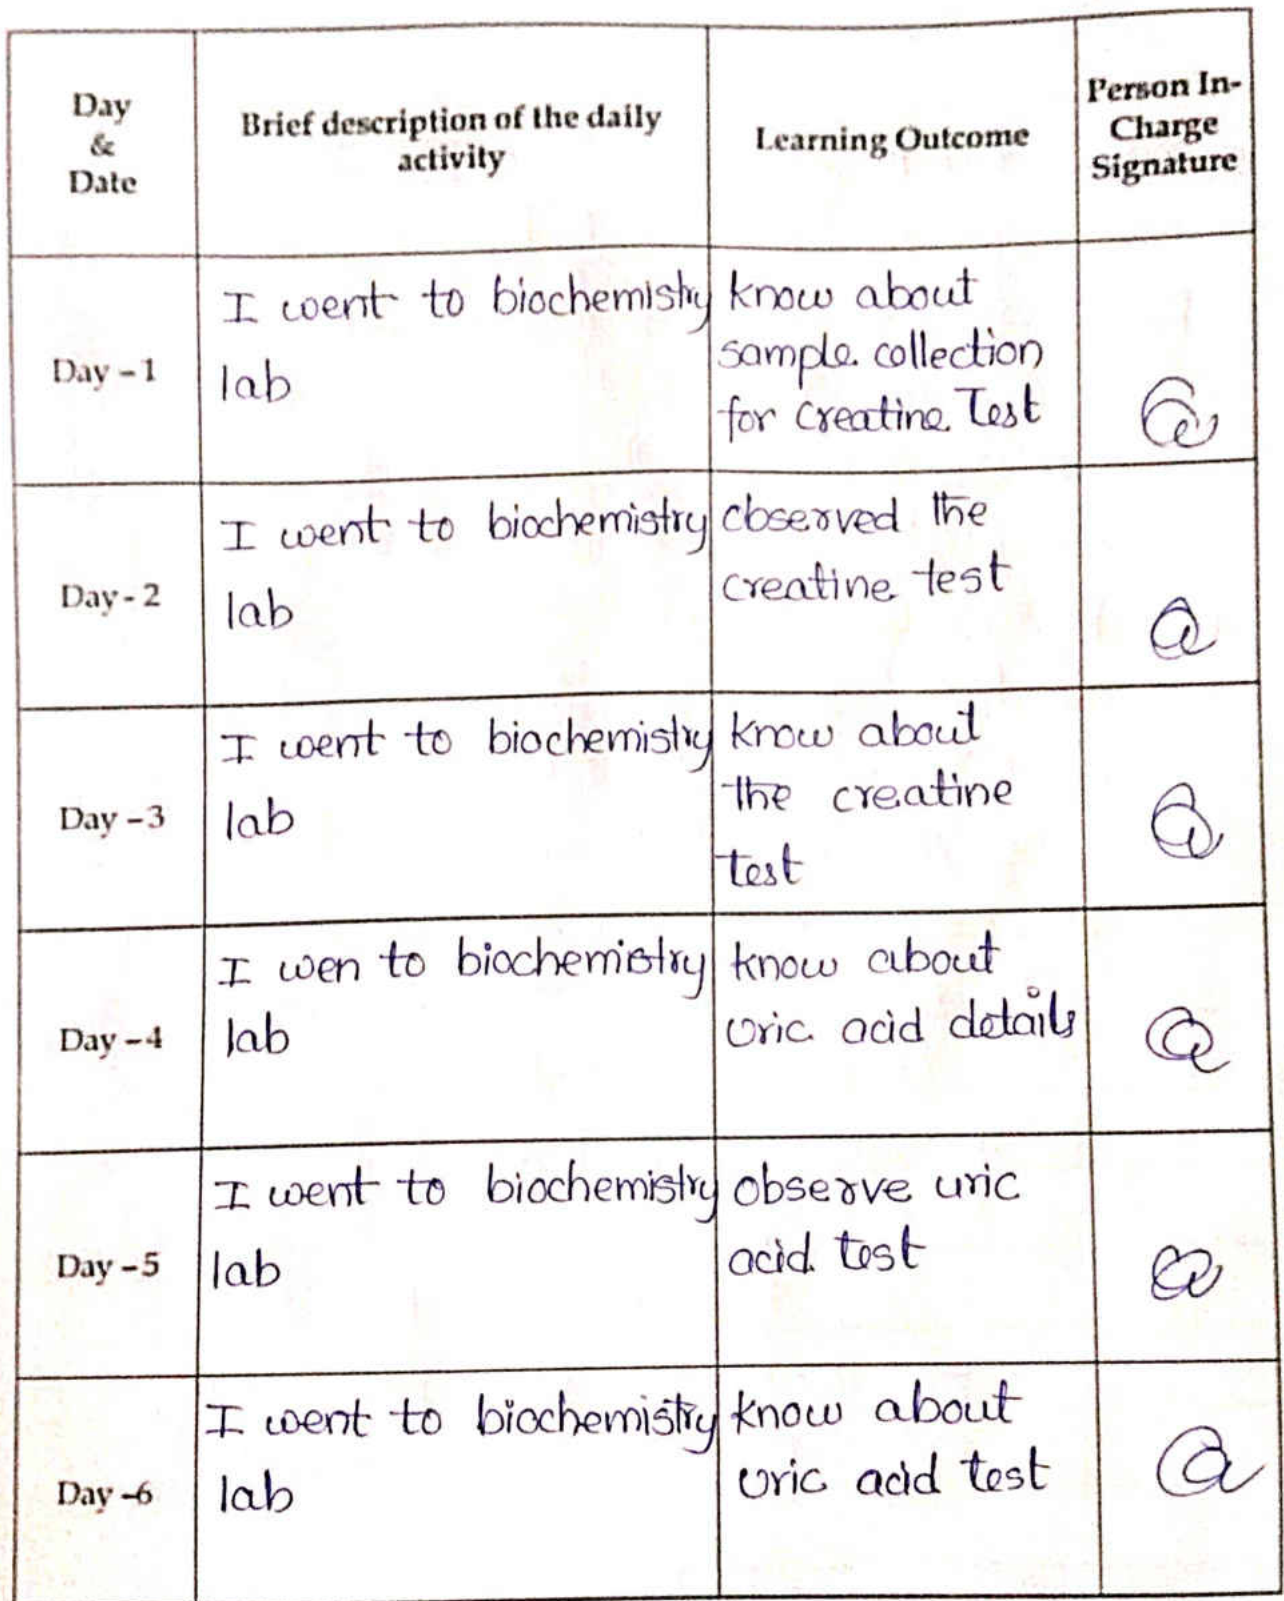 Day
&
Date
Brief description of the daily
activity
Learning Outcome
Person In-
Charge
Signature
Day - 1
I went to biochemistry
lab
know about
sample collection
for creatine Test
Day - 2
I went to biochemistry
lab
observed the
creatine test
Day - 3
I went to biochemistry
lab
know about
the creatine
test
Day - 4
I wen to biochemistry
lab
know about
uric acid details
Day - 5
I went to biochemistry
lab
observe uric
acid test
Day -6
I went to biochemistry
lab
know about
uric acid test